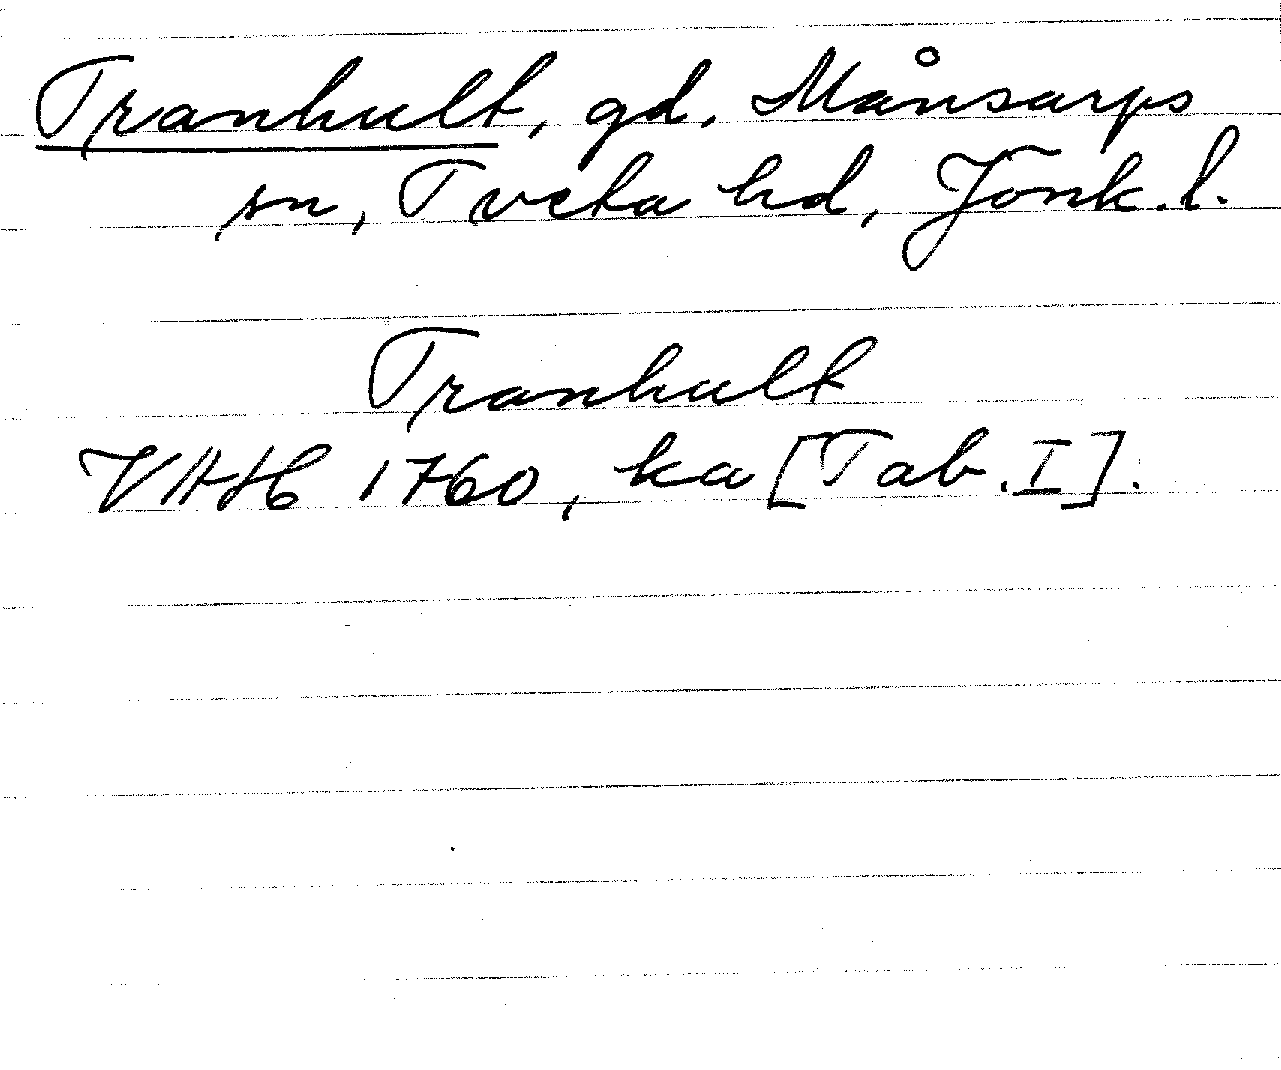 Tranhult, gd, Månsarps
sn, Tveta hd, Jönk. l.
Tranhult
VAH 1760, ka [Tab. I].